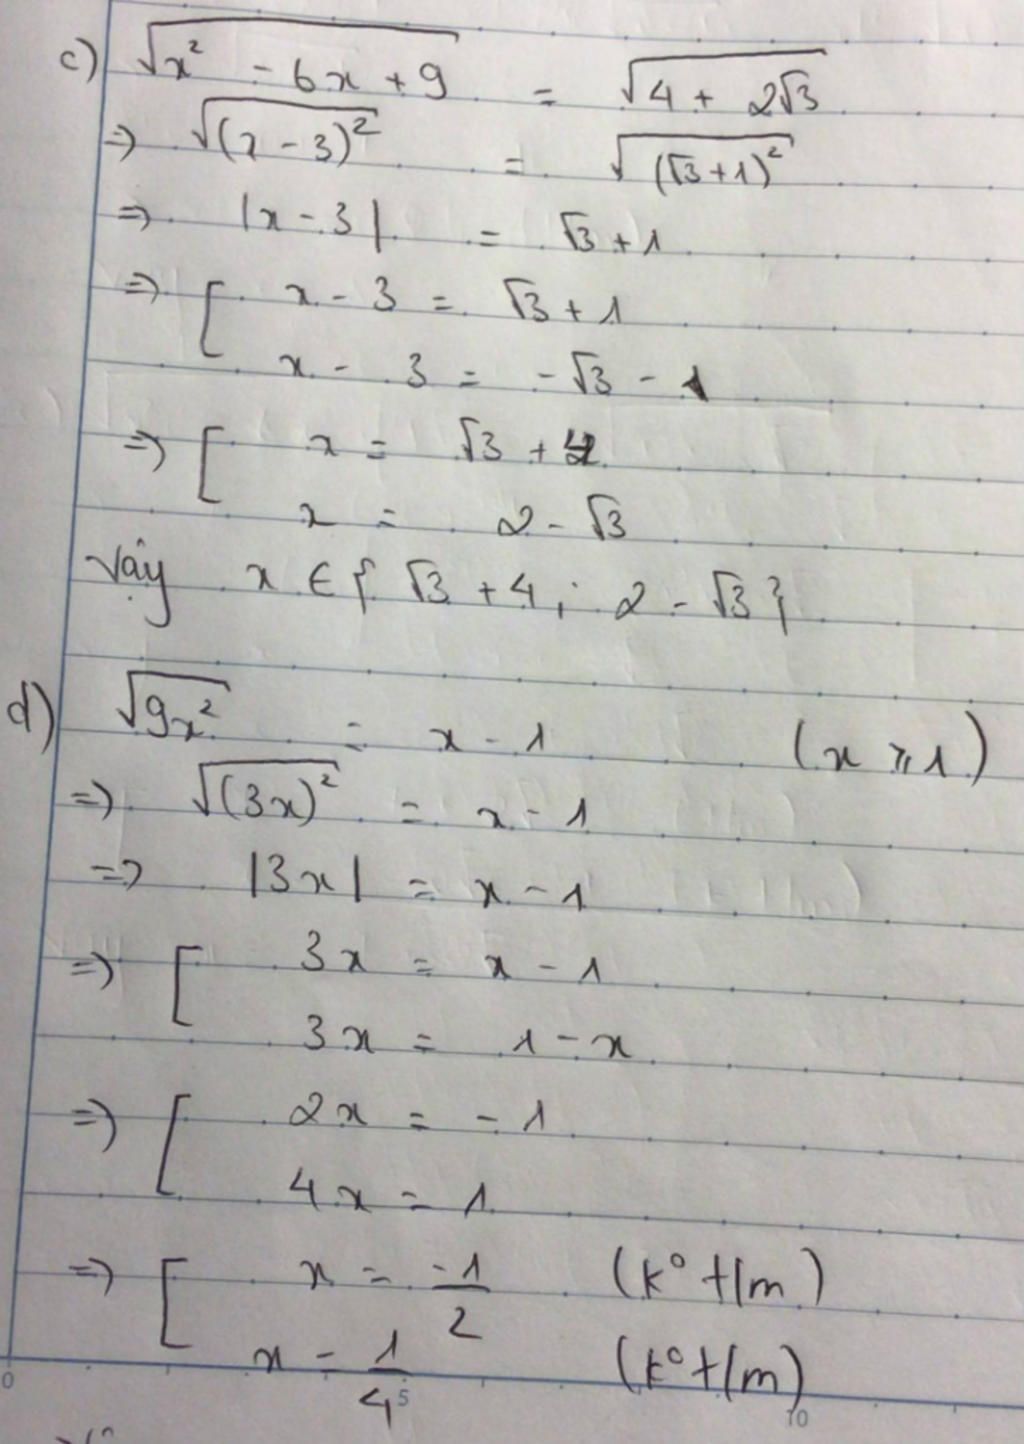 c) √(x² - 6x + 9) = √(4 + 2√3)
=> √((x - 3)²) = √((√3 + 1)²)
=> |x - 3| = √3 + 1
=> [ x - 3 = √3 + 1
x - 3 = -√3 - 1
=> [ x = √3 + 4
x = 2 - √3
Vậy x ∈ { √3 + 4 ; 2 - √3 }
d) √(9x²) = x - 1 (x ⩾ 1)
=> √((3x)²) = x - 1
=> |3x| = x - 1
=> [ 3x = x - 1
3x = 1 - x
=> [ 2x = -1
4x = 1
=> [ x = -1/2 (k° t/m)
x = 1/4 (k° t/m)
0 5 10